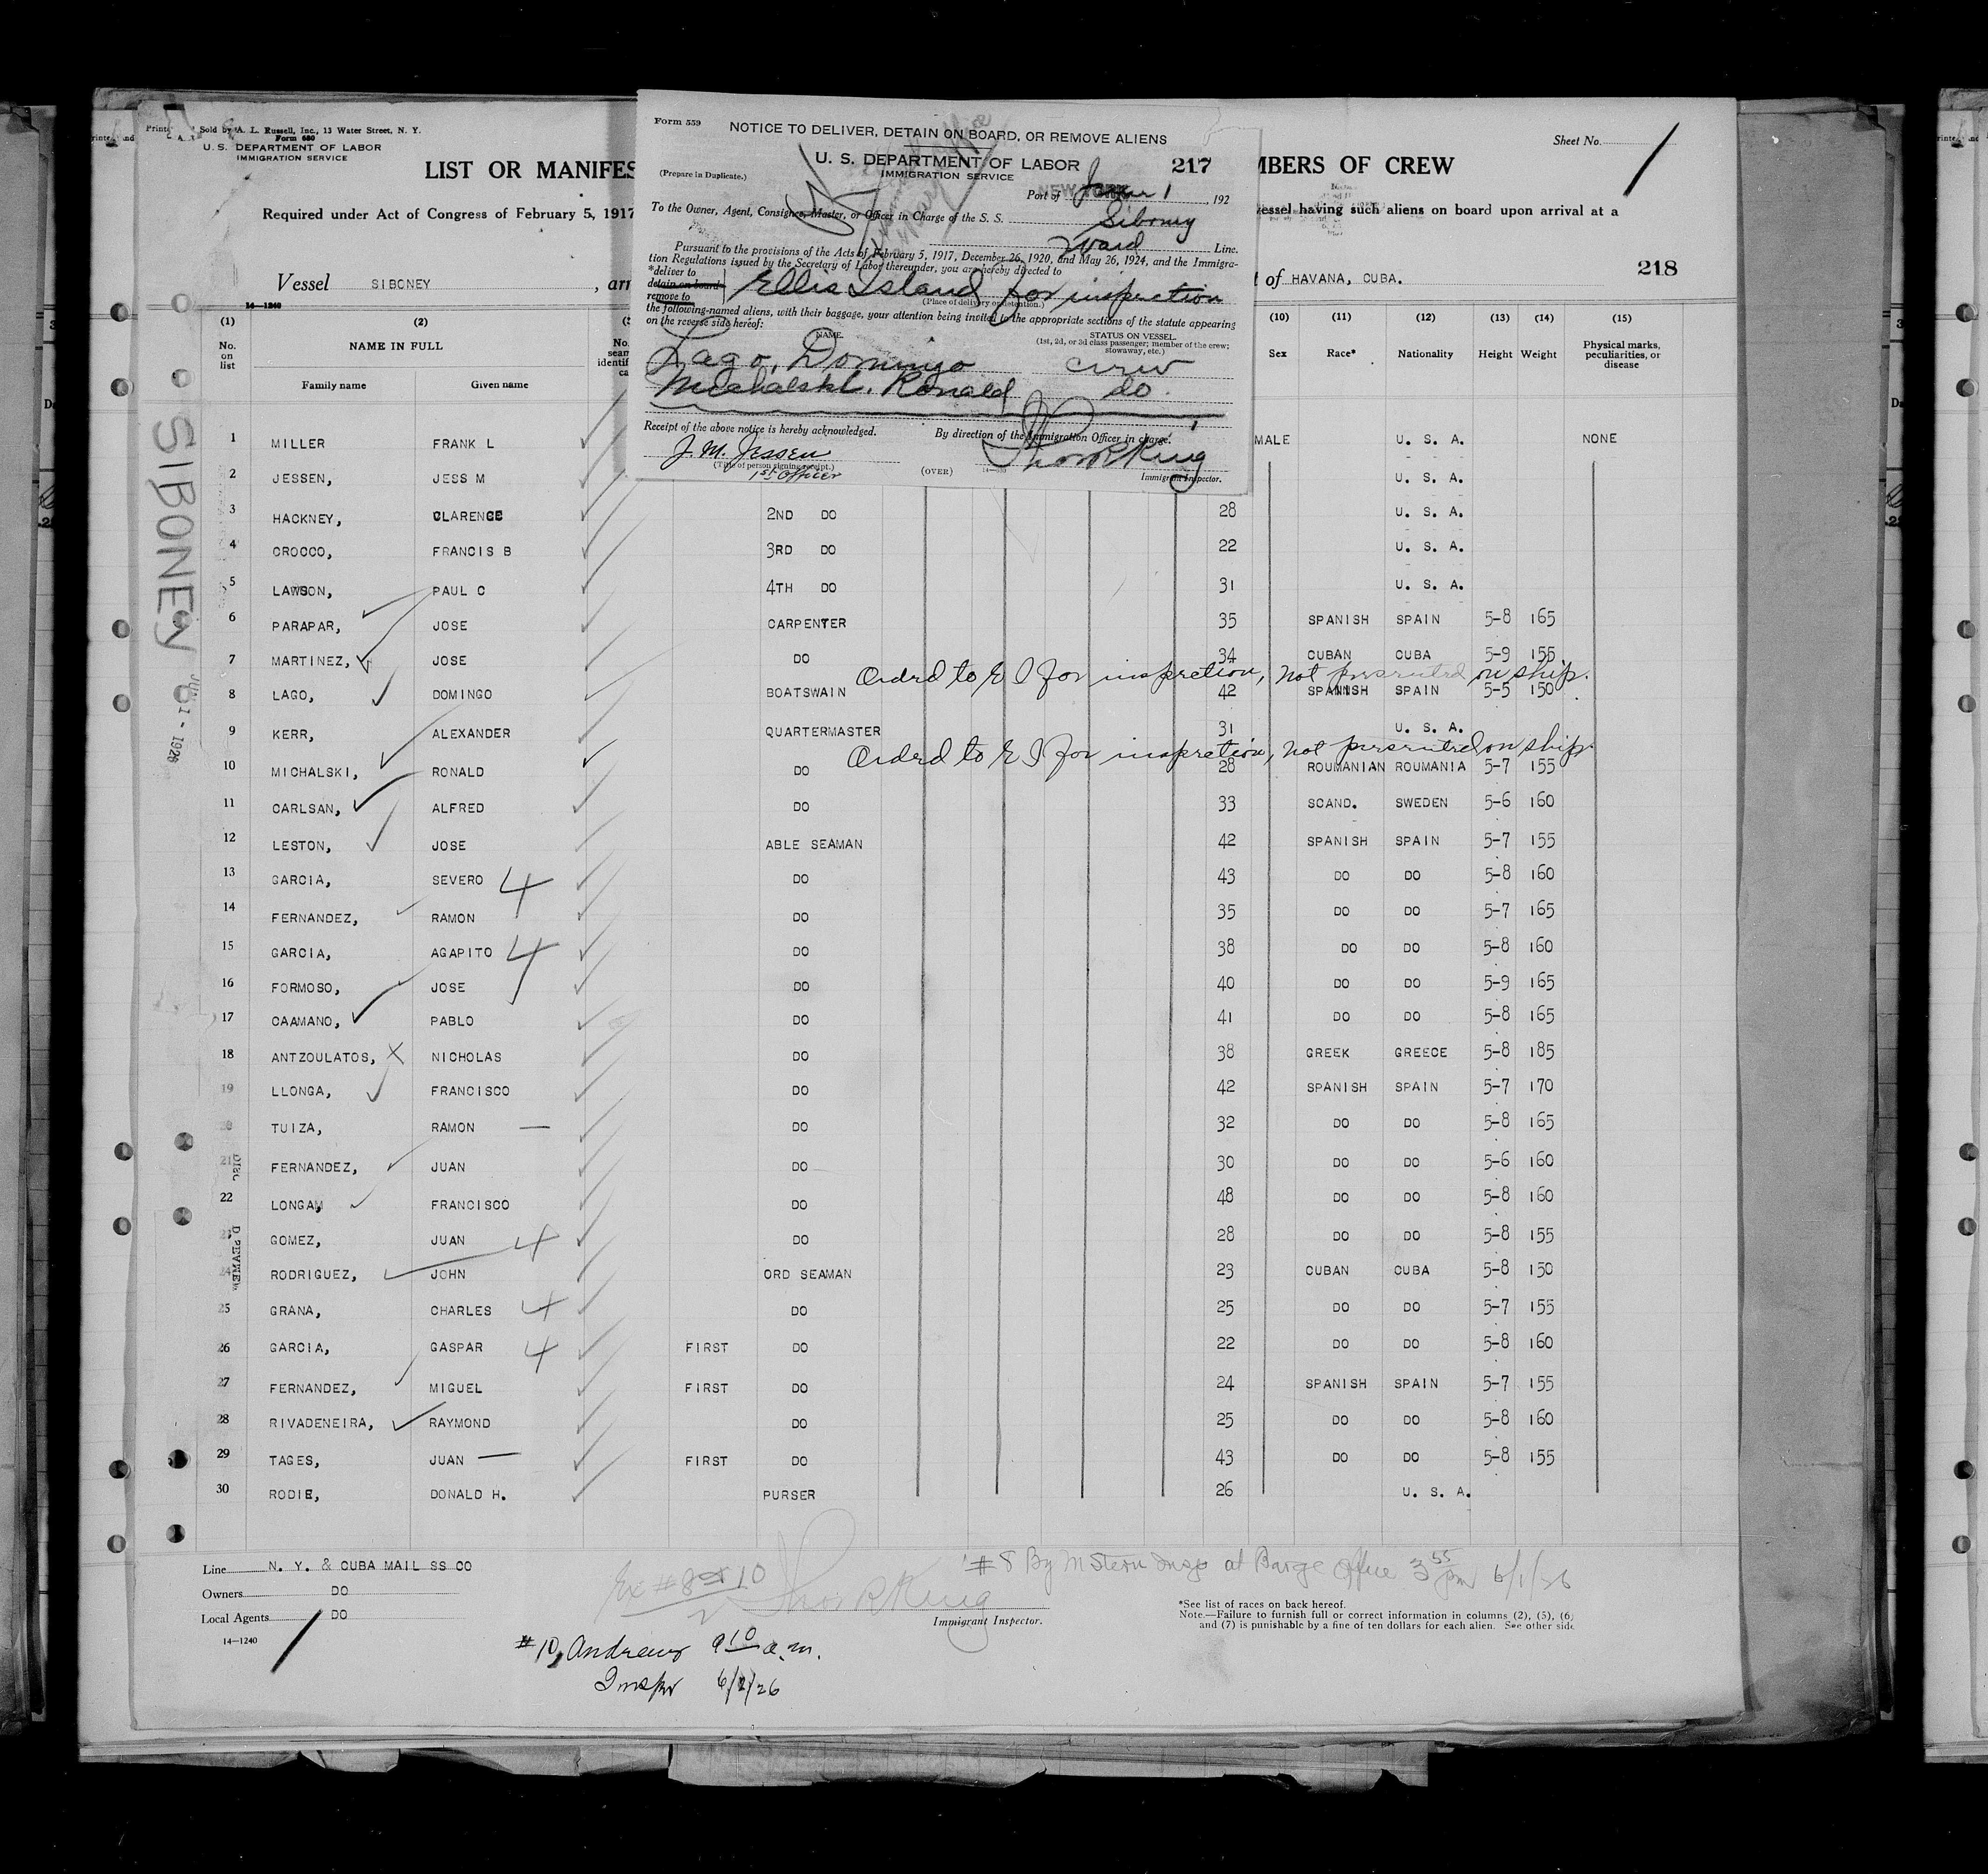 Sold by A. L. Russell, Inc., 13 Water Street, N. Y.
Form 680
U. S. DEPARTMENT OF LABOR
IMMIGRATION SERVICE
LIST OR MANIFES
MBERS OF CREW
Sheet No.
Required under Act of Congress of February 5, 1917
vessel having such aliens on board upon arrival at a
Vessel SIBONEY , arr
of HAVANA, CUBA.
218
14—1240
Form 559
NOTICE TO DELIVER, DETAIN ON BOARD, OR REMOVE ALIENS
U. S. DEPARTMENT OF LABOR
IMMIGRATION SERVICE
217
(Prepare in Duplicate.)
NEW YORK
Port of June 1, 192
To the Owner, Agent, Consignee, Master, or Officer in Charge of the S. S. Siboney
Ward Line.
Pursuant to the provisions of the Acts of February 5, 1917, December 26, 1920, and May 26, 1924, and the Immigra-
tion Regulations issued by the Secretary of Labor thereunder, you are hereby directed to
*deliver to
detain on board
remove to
Ellis Island for inspection
(Place of delivery or detention.)
the following-named aliens, with their baggage, your attention being invited to the appropriate sections of the statute appearing
on the reverse side hereof:
NAME. STATUS ON VESSEL.
(1st, 2d, or 3d class passenger; member of the crew; stowaway, etc.)
Lago, Domingo crew
Michalski, Ronald do.
Receipt of the above notice is hereby acknowledged. By direction of the Immigration Officer in charge.
J. M. Jessen Thos R King
(Title of person signing receipt.)
1st Officer
(OVER)
Immigrant Inspector.
SIBONEY JUN 1 - 1926
(1) (2) (10) (11) (12) (13) (14) (15)
No. on list NAME IN FULL Sex Race* Nationality Height Weight Physical marks, peculiarities, or disease
Family name Given name
1 MILLER FRANK L MALE U. S. A. NONE
2 JESSEN, JESS M U. S. A.
3 HACKNEY, CLARENCE 2ND DO 28 U. S. A.
4 CROCCO, FRANCIS B 3RD DO 22 U. S. A.
5 LAWSON, PAUL C 4TH DO 31 U. S. A.
6 PARAPAR, JOSE CARPENTER 35 SPANISH SPAIN 5-8 165
7 MARTINEZ, JOSE DO 34 CUBAN CUBA 5-9 155
Ordrd to E I for inspection, not presented on ship.
8 LAGO, DOMINGO BOATSWAIN 42 SPANISH SPAIN 5-5 150
9 KERR, ALEXANDER QUARTERMASTER 31 U. S. A.
Ordrd to E I for inspection, not presented on ship
10 MICHALSKI, RONALD DO 28 ROUMANIAN ROUMANIA 5-7 155
11 CARLSAN, ALFRED DO 33 SCAND. SWEDEN 5-6 160
12 LESTON, JOSE ABLE SEAMAN 42 SPANISH SPAIN 5-7 155
13 GARCIA, SEVERO 4 DO 43 DO DO 5-8 160
14 FERNANDEZ, RAMON DO 35 DO DO 5-7 165
15 GARCIA, AGAPITO 4 DO 38 DO DO 5-8 160
16 FORMOSO, JOSE DO 40 DO DO 5-9 165
17 CAAMANO, PABLO DO 41 DO DO 5-8 165
18 ANTZOULATOS, X NICHOLAS DO 38 GREEK GREECE 5-8 185
19 LLONGA, FRANCISCO DO 42 SPANISH SPAIN 5-7 170
20 TUIZA, RAMON — DO 32 DO DO 5-8 165
21 FERNANDEZ, JUAN DO 30 DO DO 5-6 160
22 LONGAM FRANCISCO DO 48 DO DO 5-8 160
23 GOMEZ, JUAN 4 DO 28 DO DO 5-8 155
24 RODRIGUEZ, JOHN ORD SEAMAN 23 CUBAN CUBA 5-8 150
25 GRANA, CHARLES 4 DO 25 DO DO 5-7 155
26 GARCIA, GASPAR 4 FIRST DO 22 DO DO 5-8 160
27 FERNANDEZ, MIGUEL FIRST DO 24 SPANISH SPAIN 5-7 155
28 RIVADENEIRA, RAYMOND DO 25 DO DO 5-8 160
29 TAGES, JUAN — FIRST DO 43 DO DO 5-8 155
30 RODIE, DONALD H. PURSER 26 U. S. A.
Line N. Y. & CUBA MAIL SS CO
Owners DO
Local Agents DO
14—1240
Ex #8 & 10
Thos R King
Immigrant Inspector.
#8 By M Stern Insp at Barge Office 3 55 pm 6/1/26
#10, Andrews 9 10 a.m.
Inspr 6/2/26
*See list of races on back hereof.
Note.—Failure to furnish full or correct information in columns (2), (5), (6)
and (7) is punishable by a fine of ten dollars for each alien. See other side